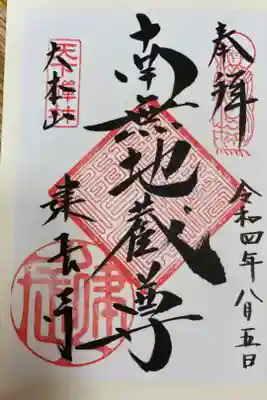 奉拝
令和四年八月五日
南無地蔵尊
天下禅林
大本山
建長寺